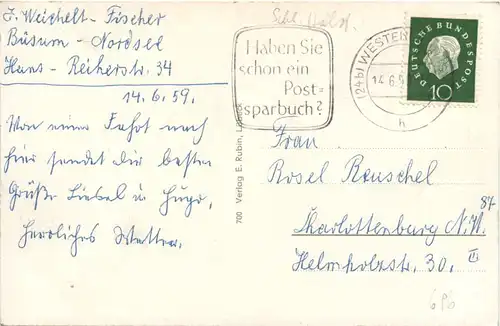 J. Weichelt-Fischer
Büsum - Nordsee
Hans-Reiherstr. 34
14.6.59.
Von einer Fahrt nach
hier sendet die besten
Grüße Liesel u Hugo.
Herrliches Wetter.
Schl. Holst.
Haben Sie
schon ein
Post-
sparbuch?
(24b) WESTEN
14.6.5
h
DEUTSCHE BUNDESPOST
10
700 Verlag E. Rubin,
Frau
Rosel Reuschel
87
Charlottenburg N.W.
Helmholzstr. 30. III
696